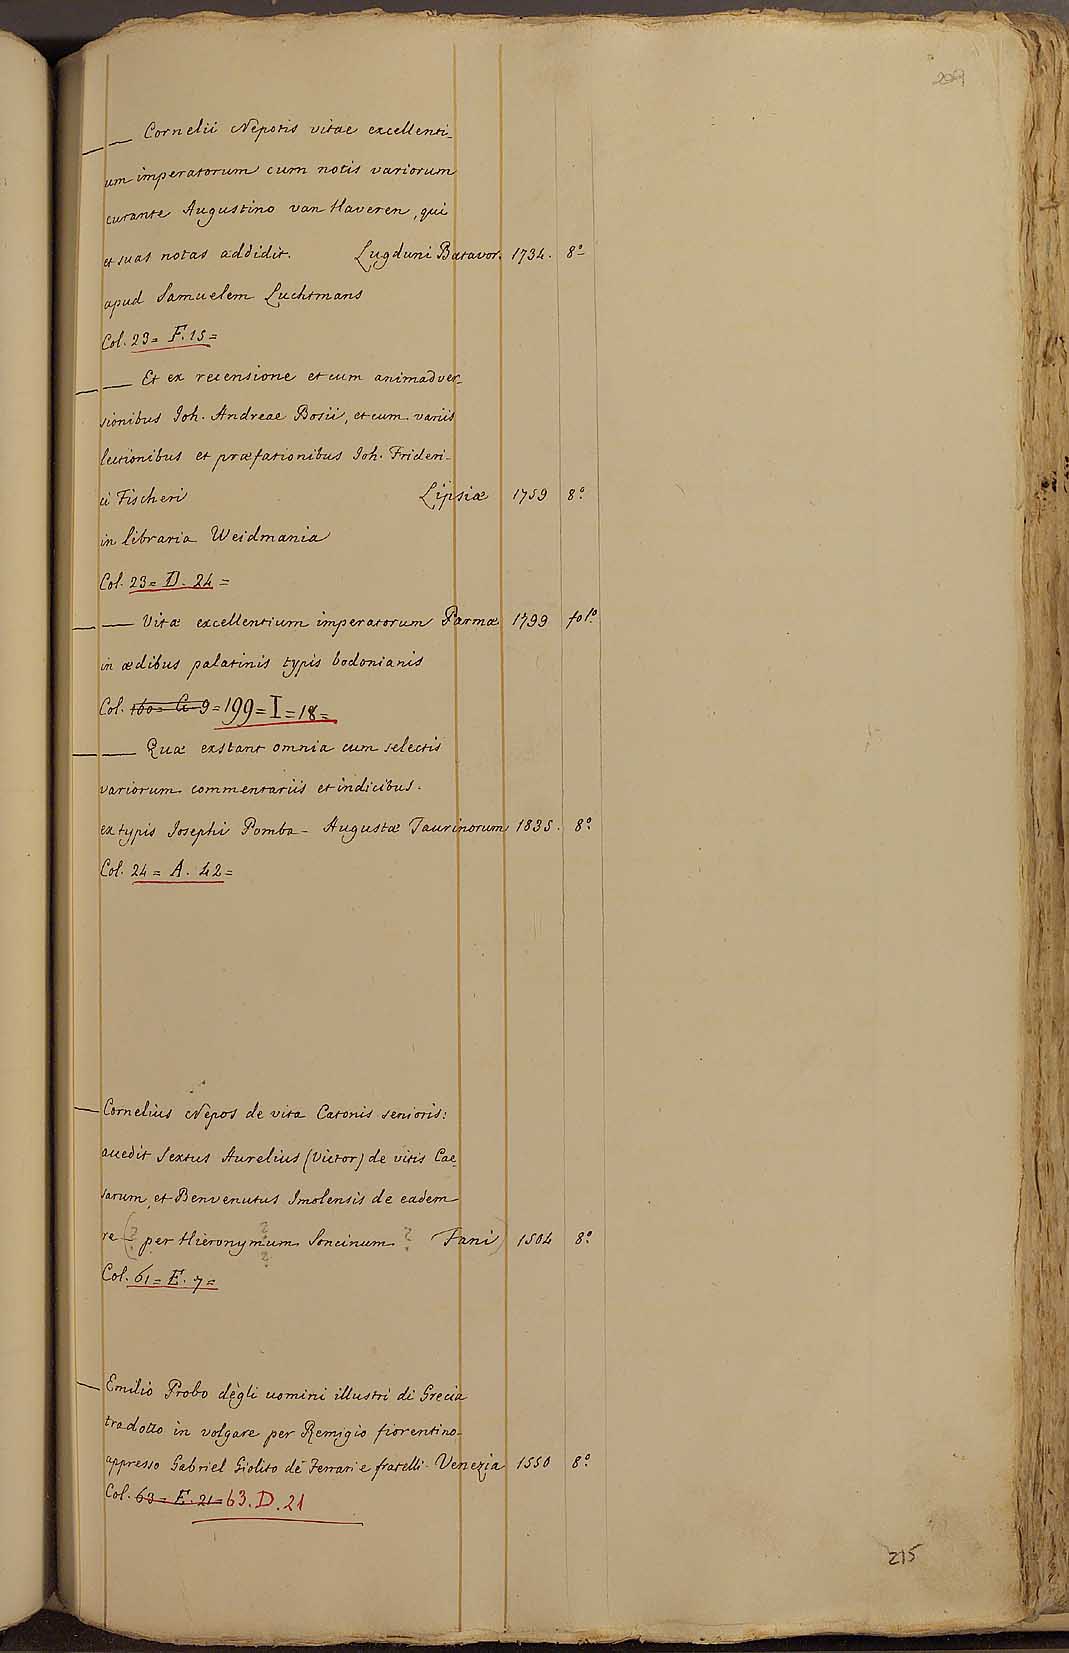 209
— Cornelii Nepotis vitae excellenti-
um imperatorum cum notis variorum
curante Augustino van Staveren, qui
et suas notas addidit. Lugduni Batavor. 1734. 8º
apud Samuelem Luchtmans
Col. 23= F. 15=
— Et ex recensione et cum animadver-
sionibus Joh. Andreae Bosii, et cum variis
lectionibus et præfationibus Joh. Frideri-
ci Fischeri Lipsiæ 1759 8º
in libraria Weidmania
Col. 23= D. 24=
— Vitæ excellentium imperatorum Parmæ 1799 folº
in ædibus palatinis typis bodonianis
Col. 160= G. 9=199=I=18=
— Quæ exstant omnia cum selectis
variorum commentariis et indicibus.
ex typis Josephi Pomba - Augustæ Taurinorum 1835. 8º
Col. 24= A. 42=
Cornelius Nepos de vita Catonis senioris:
accedit Sextus Aurelius (Victor) de vitis Cae-
sarum, et Benvenutus Imolensis de eadem
re (? per Hieronymum Soncinum ? Fani) 1504 8º
Col. 61= E. 7=
Emilio Probo dègli uomini illustri di Grecia
tradotto in volgare per Remigio fiorentino-
appresso Gabriel Giolito de' Ferrari e fratelli - Venezia 1550 8º
Col. 63= E. 21=63. D. 21
215